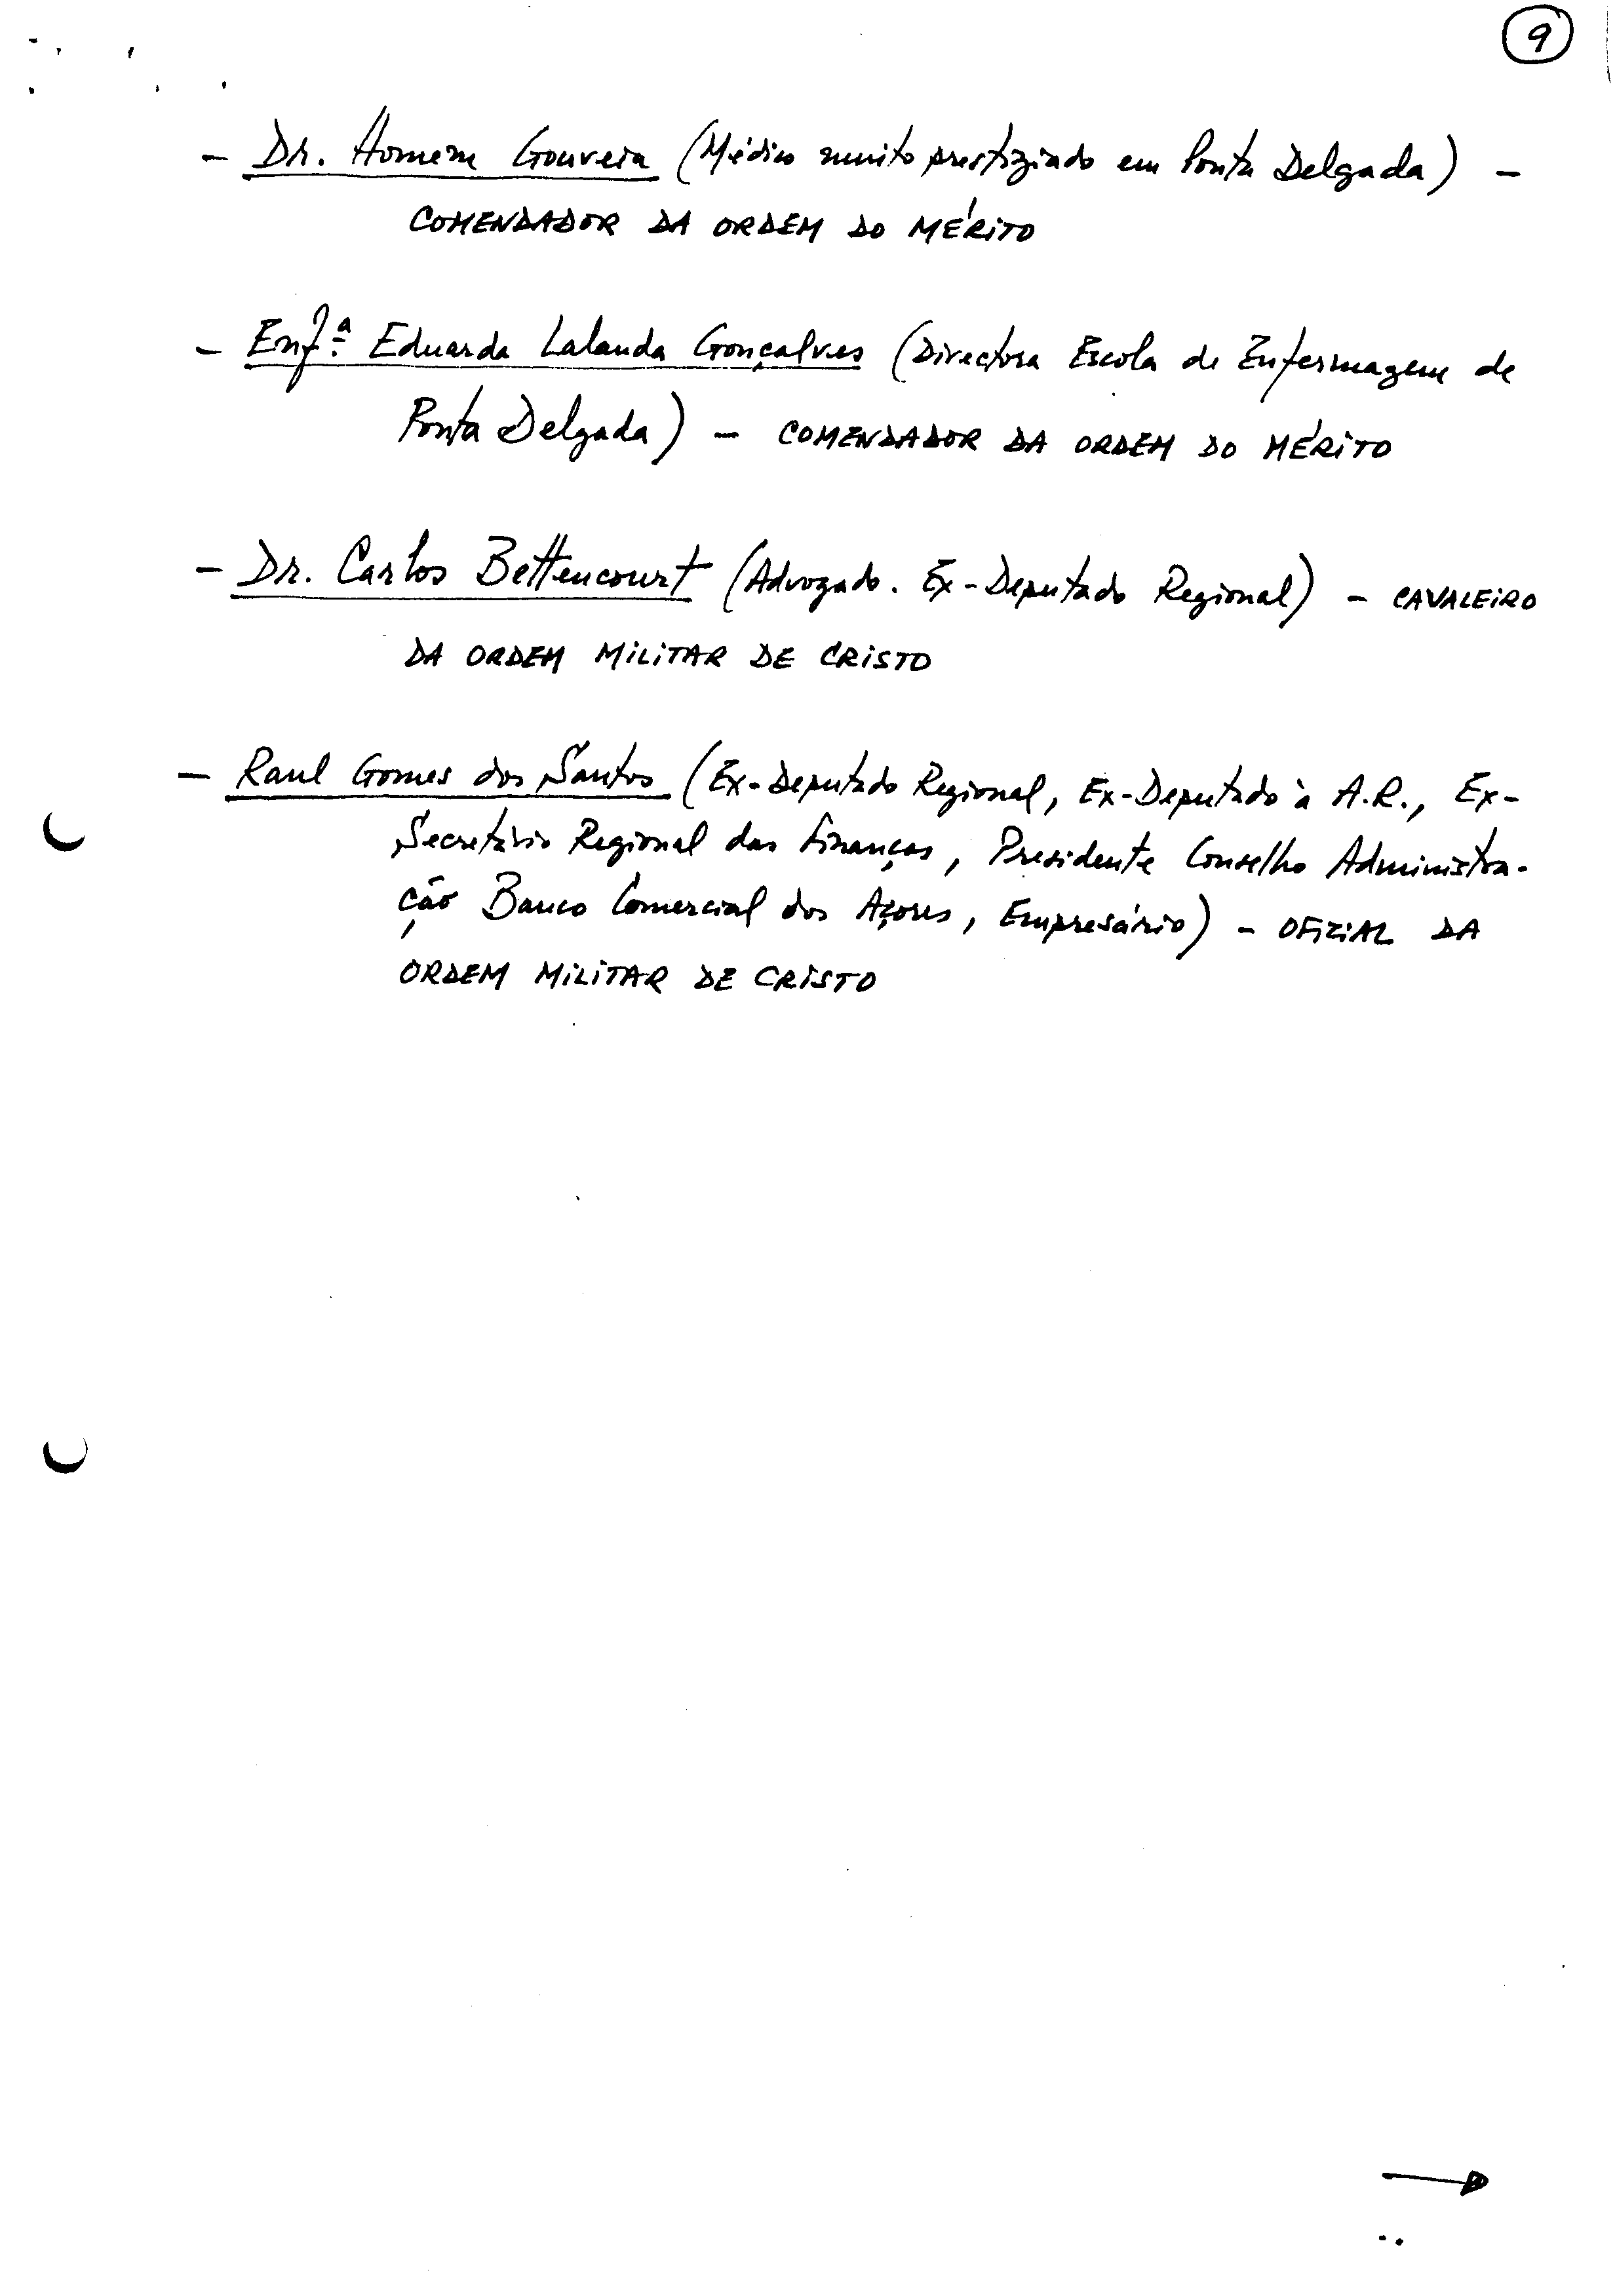 9
- Dr. Homem Gouveia (Médico muito prestigiado em Ponta Delgada) -
COMENDADOR DA ORDEM DO MÉRITO
- Enf.ª Eduarda Lalanda Gonçalves (Directora Escola de Enfermagem de
Ponta Delgada) - COMENDADOR DA ORDEM DO MÉRITO
- Dr. Carlos Bettencourt (Advogado. Ex-Deputado Regional) - CAVALEIRO
DA ORDEM MILITAR DE CRISTO
- Raul Gomes dos Santos (Ex-Deputado Regional, Ex-Deputado à A.R., Ex-
Secretário Regional das Finanças, Presidente Conselho Administra-
ção Banco Comercial dos Açores, Empresário) - OFICIAL DA
ORDEM MILITAR DE CRISTO